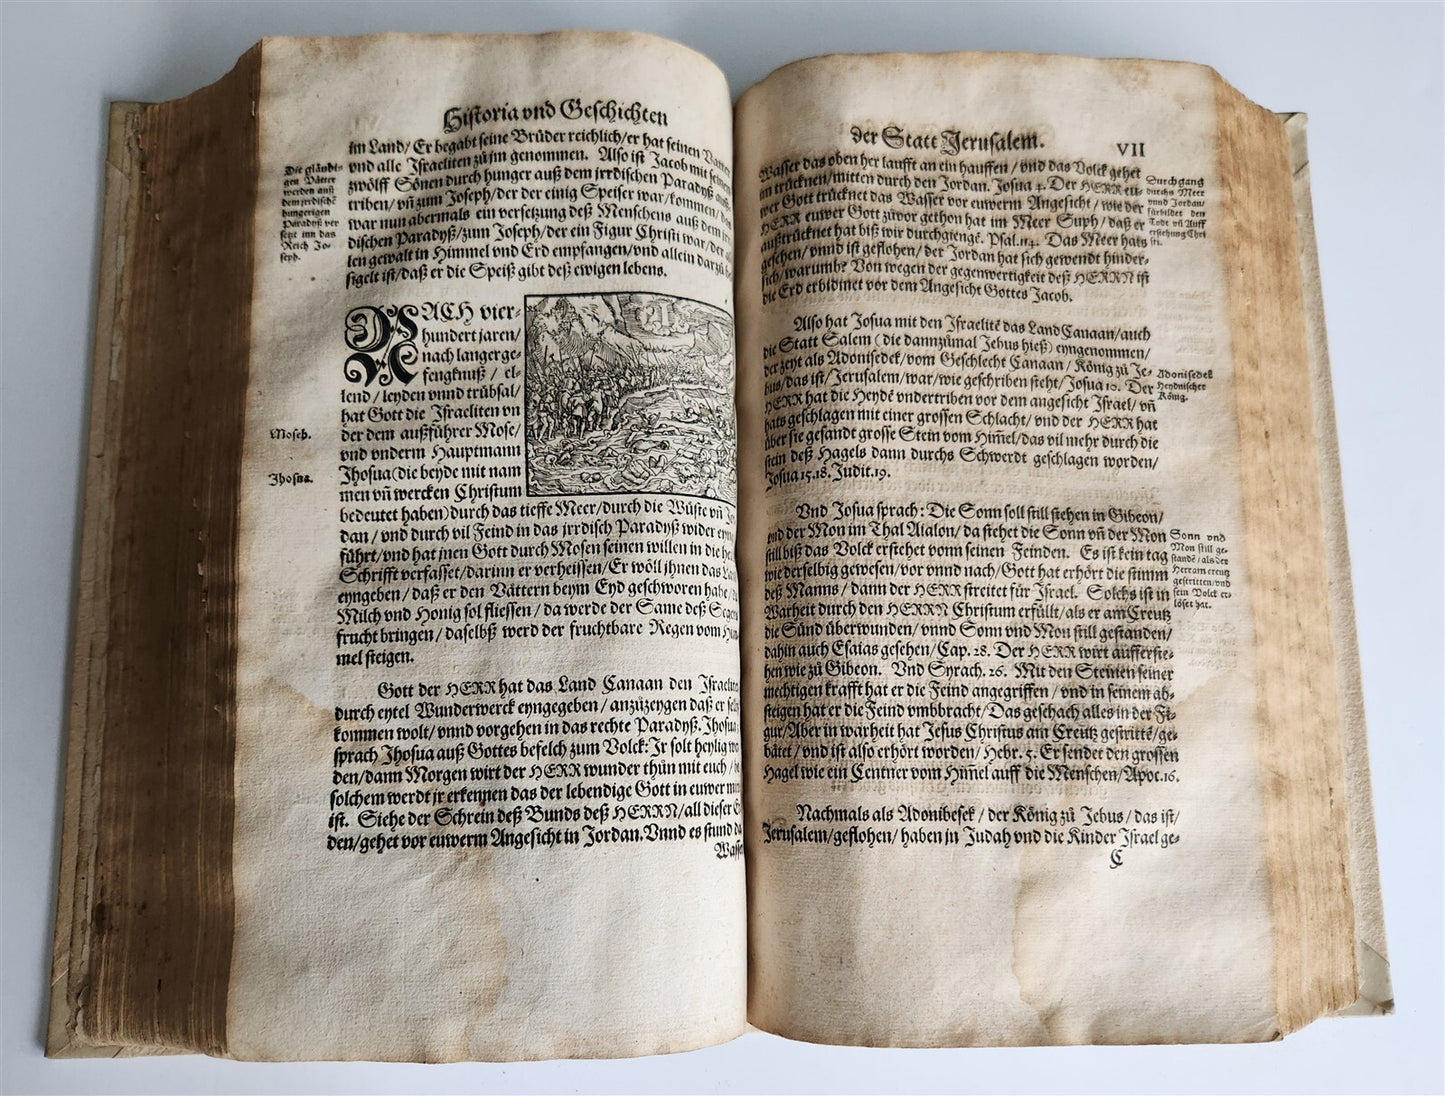 Historia vnd Geschichten
im Land/ Er begabt seine Brüder reichlich/er hat seinen Vatter
vnd alle Israeliten zů jm genommen. Also ist Jacob mit seinen
zwölff Sönen durch hunger auß dem jrrdischen Paradyß
triben/ vñ zum Joseph/der der einig Speiser war/kommen/
war nun abermals ein versetzung deß Menschens auß dem
dischen Paradyß/zum Joseph/der ein Figur Christi war/der
len gewalt in Himmel vnd Erd empfangen/vnd allein darzů
sigelt ist/daß er die Speiß gibt deß ewigen lebens.
Die gläubi-
gen Vätter
werden auß
dem jrrdischē
hungerigen
Paradyß ver
setzt inn das
Reich Jo-
seph.
NACH vier-
hundert jaren/
nach langer ge-
fengknuß / el-
lend / leyden vnnd trübsal/
hat Gott die Israeliten vn
der dem außführer Mose/
vnd vnderm Hauptmann
Jhosua (die beyde mit nam
men vñ wercken Christum
bedeutet haben) durch das tieffe Meer/durch die Wüste vñ
dan / vnd durch vil Feind in das jrrdisch Paradyß wider
führt/vnd hat jnen Gott durch Mosen seinen willen in die
Schrifft verfasset/darinn er verheissen/Er wöll jhnen das
eyngeben / daß er den Vättern beym Eyd geschworen habe/
Milch vnd Honig sol fliessen / da werde der Same deß
frucht bringen / daselbst werd der fruchtbare Regen vom
mel steigen.
Moseh.
Jhosua.
Gott der HERR hat das Land Canaan den
durch eytel Wunderwerck eyngegeben / anzůzeygen daß er
kommen wolt/ vnnd vorgehen in das rechte Paradyß. Jhosua
sprach Jhosua auß Gottes befelch zum Volck: Jr solt heylig
den/dann Morgen wirt der HERR wunder thůn mit euch /
solchem werdt jr erkennen das der lebendige Gott in euwer
ist. Siehe der Schrein deß Bunds deß HERRN/all dieser
den/gehet vor euwerm Angesicht in Jordan. Vnnd es stund
der Statt Jerusalem. VII
Wasser das oben her laufft an ein hauffen / vnd das Volck gehet
trücknen/mitten durch den Jordan. Josua 4. Der HERR eu-
wer Gott trücknet das Wasser vor euwerm Angesicht / wie der
HERR euwer Gott zůvor gethon hat im Meer Suph/ daß er
außtrücknet hat biß wir durchgiengē. Psal.114. Das Meer hats
gesehen/vnnd ist geflohen/ der Jordan hat sich gewendt hinder-
sich/warumb? Von wegen der gegenwertigkeit deß HERRN ist
die Erd erbidnet vor dem Angesicht Gottes Jacob.
Durchgang
durchs Meer
vnnd Jordan/
fürbildet den
Todt vñ Auff
erstehung Chri
sti.
Also hat Josua mit den Israelitē das Land Canaan/auch
die Statt Salem (die dannzůmal Jebus hieß) eyngenommen/
der zeyt als Adonisedek/vom Geschlecht Canaan/ König zů Je-
bus/das ist/Jerusalem/war/wie geschriben steht/Josua 10. Der
HERR hat die Heydē vndertriben vor dem angesicht Israel/ vñ
hats geschlagen mit einer grossen Schlacht/ vnd der HERR hat
über sie gesandt grosse Stein vom Him̃el/das vil mehr durch die
stein deß Hagels dann durchs Schwerdt geschlagen worden/
Josua 15.18. Judit.19.
Adonisedek
Heydnischer
König.
Vnd Josua sprach: Die Sonn soll still stehen in Gibeon/
vnd der Mon im Thal Aialon/ da stehet die Sonn vñ der Mon
still biß das Volck erstehet vonn seinen Feinden. Es ist kein tag
wie derselbig gewesen/ vor vnnd nach/ Gott hat erhört die stimm
deß Manns / dann der HERR streitet für Israel. Solchs ist in
Warheit durch den HERRN Christum erfüllt/ als er am Creutz
die Sünd überwunden/ vnnd Sonn vnd Mon still gestanden/
dahin auch Esaias gesehen/ Cap. 28. Der HERR wirt aufferste-
hen wie zů Gibeon. Vnd Syrach. 26. Mit den Steinen seiner
mechtigen krafft hat er die Feind angegriffen / vnd in seinem ab-
steigen hat er die Feind vmbbracht/Das geschach alles in der Fi-
gur/Aber in warheit hat Jesus Christus am Creutz gestrittē/ge-
bätet / vnd ist also erhört worden/ Hebr. 5. Er sendet den grossen
Hagel wie ein Centner vom Him̃el auff die Menschen/Apoc.16.
Sonn vnd
Mon still ge-
standē/ als der
Herr am creutz
gestritten/vnd
sein Volck er-
löset hat.
Nachmals als Adonibesek / der König zů Jebus / das ist/
Jerusalem/geflohen/ haben jn Judah vnd die Kinder Israel ge-
C